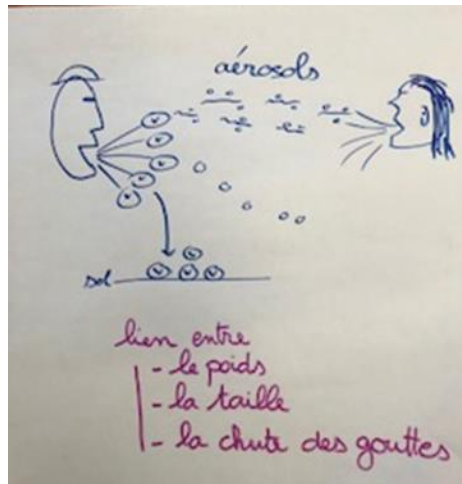 aérosols
sol
lien entre
- le poids
- la taille
- la chute des gouttes